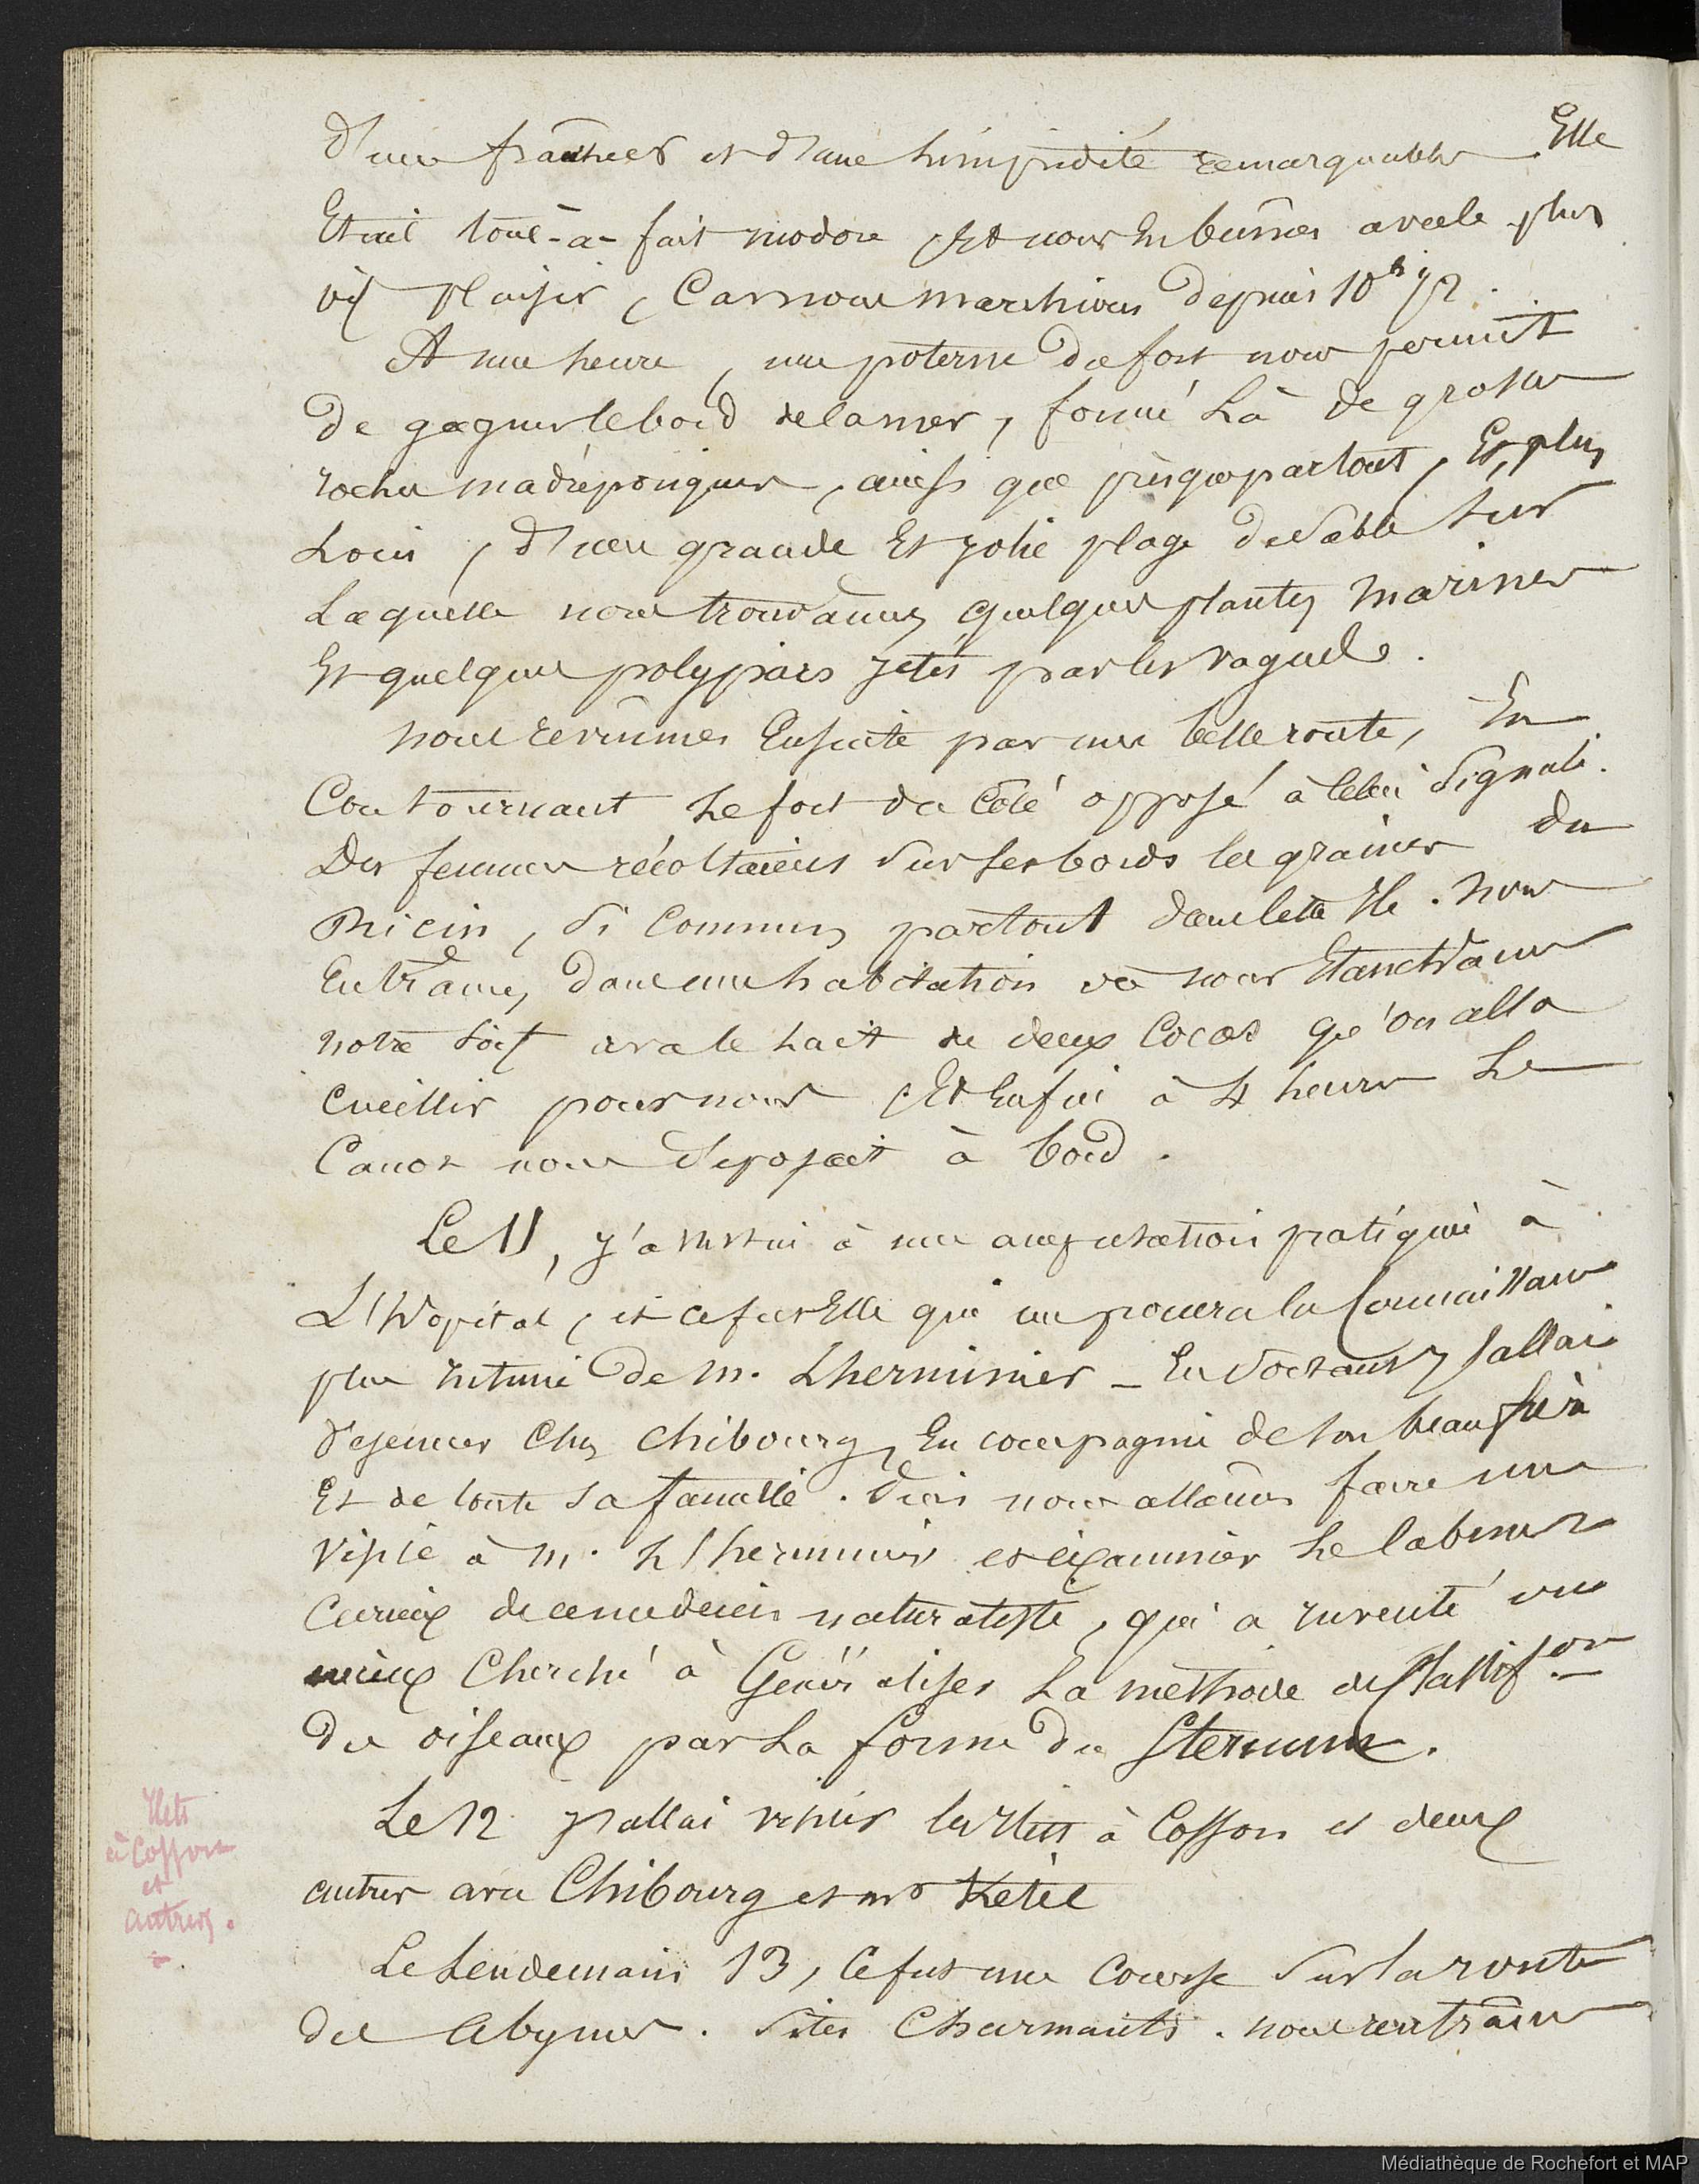 d'une fraîcheur et d'une limpidité remarquables. Elle
Etait tout-à-fait inodore Et nous En bûmes avec le plus
vif plaisir, Car nous marchions depuis 10h 1/2.
A une heure, une poterne du fort nous permit
de gagner le bord de la mer, formé Là de grosses
roches madréporiques, ainsi que presque partout, Et, plus
Loin, d'une grande Et jolie plage de Sable Sur
Laquelle nous trouvâmes quelques plantes Marines
Et quelques polypiers jetés par les vagues.
Nous revînmes Ensuite par une belle route, En
Contournant Le fort du Côté opposé à Celui Signalé.
Des femmes récoltaient Sur Ses bords les graines du
Ricin, Si Commun partout dans Cette Ile. Nous
Entrâmes dans une habitation où nous Etanchâmes
notre Soif avec le Lait de deux Cocos qu'on alla
Cueillir pour nous Et Enfin à 4 heures Le
Canot nous déposait à bord.
Le 11, j'assistai à une amputation pratiquée à
L'Hôpital, et ce fut Elle qui me procura la Connaissance
plus Intime de M. Lherminier _ En Sortant j'allai
déjeuner Chez Chibourg, En compagnie de Son beau frère
Et de toute Sa famille. Puis nous allâmes faire une
Visite à M. L'herminier et examiner Le Cabinet
Curieux de ce médecin naturaliste, qui a Inventé ou
mieux Cherché à Généraliser La méthode de Classif.on
des oiseaux par La forme du Sternum.
Le 12 j'allai visiter les Ilets à Cosson et deux
autres avec Chibourg et mr Ketèl
Le Lendemain 13, Ce fut une Course Sur la route
des Abymes. Sites Charmants. Nous rentrâmes
Ilets
à Cosson
et
autres.